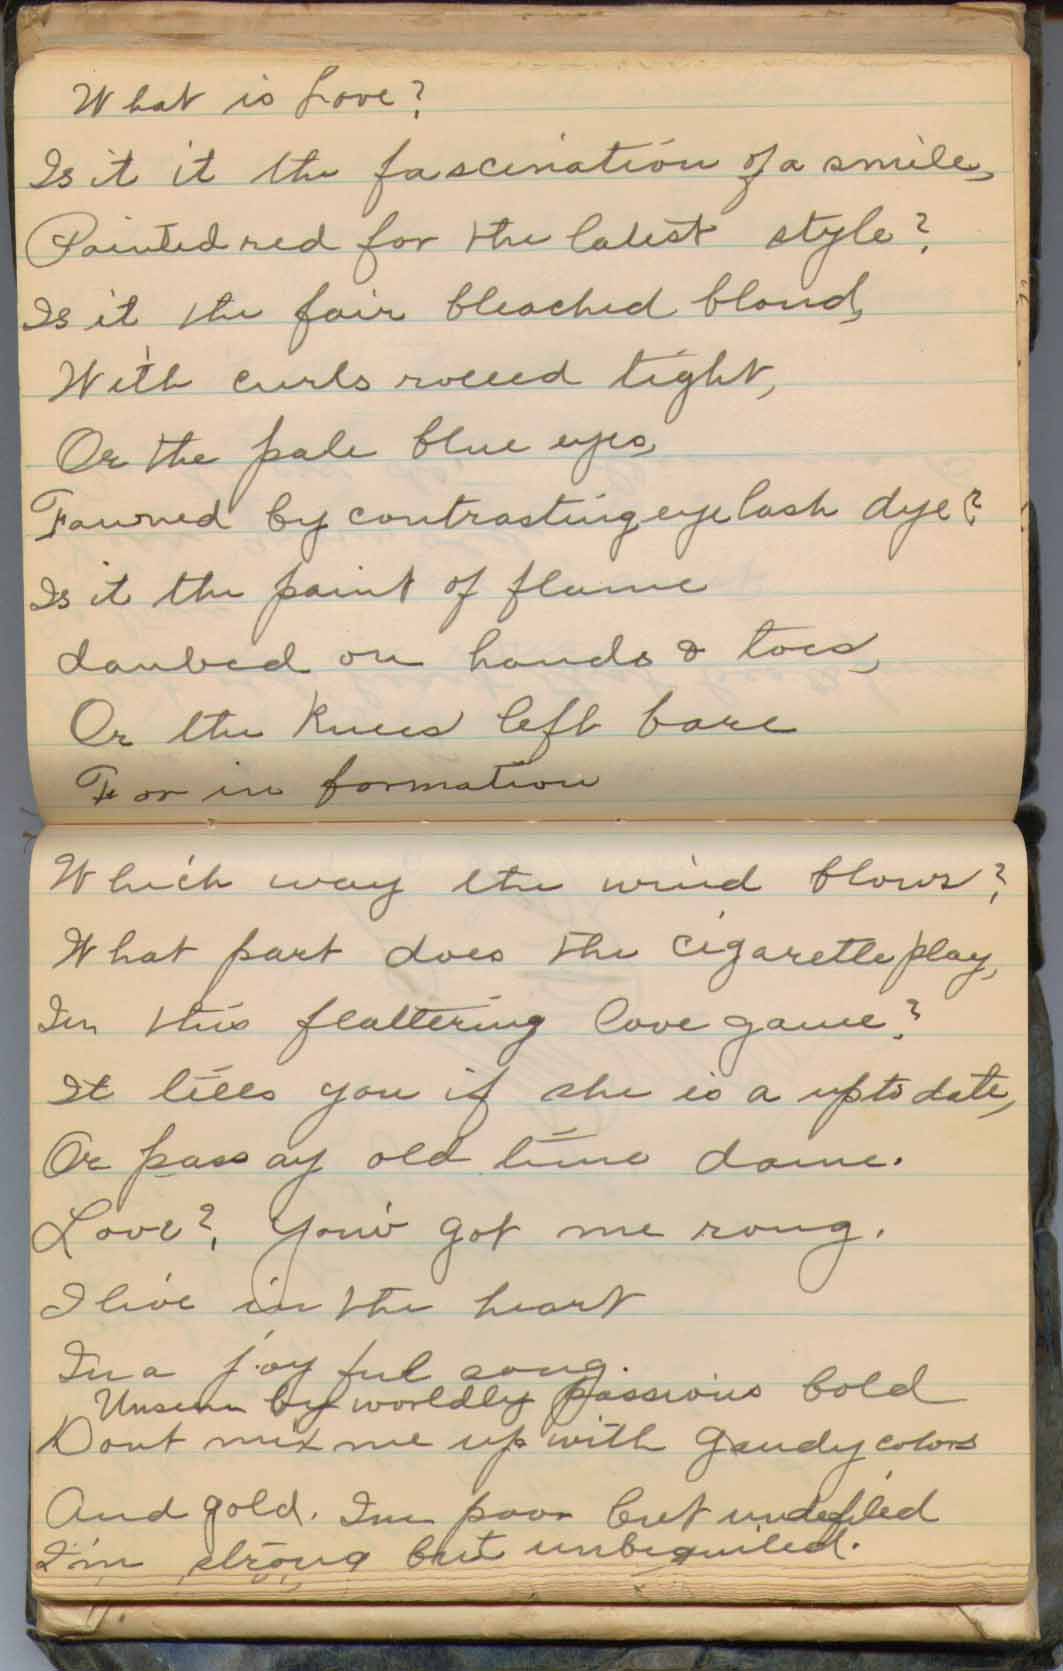 What is Love?
Is it it the fascination of a smile,
Painted red for the latest style?
Is it the fair bleached blond,
With curls rolled tight,
Or the pale blue eyes,
Fawned by contrasting eye lash dye?
Is it the paint of flame
daubed on hands & toes,
Or the knees left bare
For in formation
Which way the wind blows?
What part does the cigarette play,
In this flattering love game?
It tells you if she is a up to date,
Or pass ay old time dame.
Love? You'v got me rong.
I live in the heart
In a joy ful song.
Unseen by worldly passions bold
Dont mix me up with gaudy colors
And gold. Im poor but undefiled
I'm strong but unbeguiled.